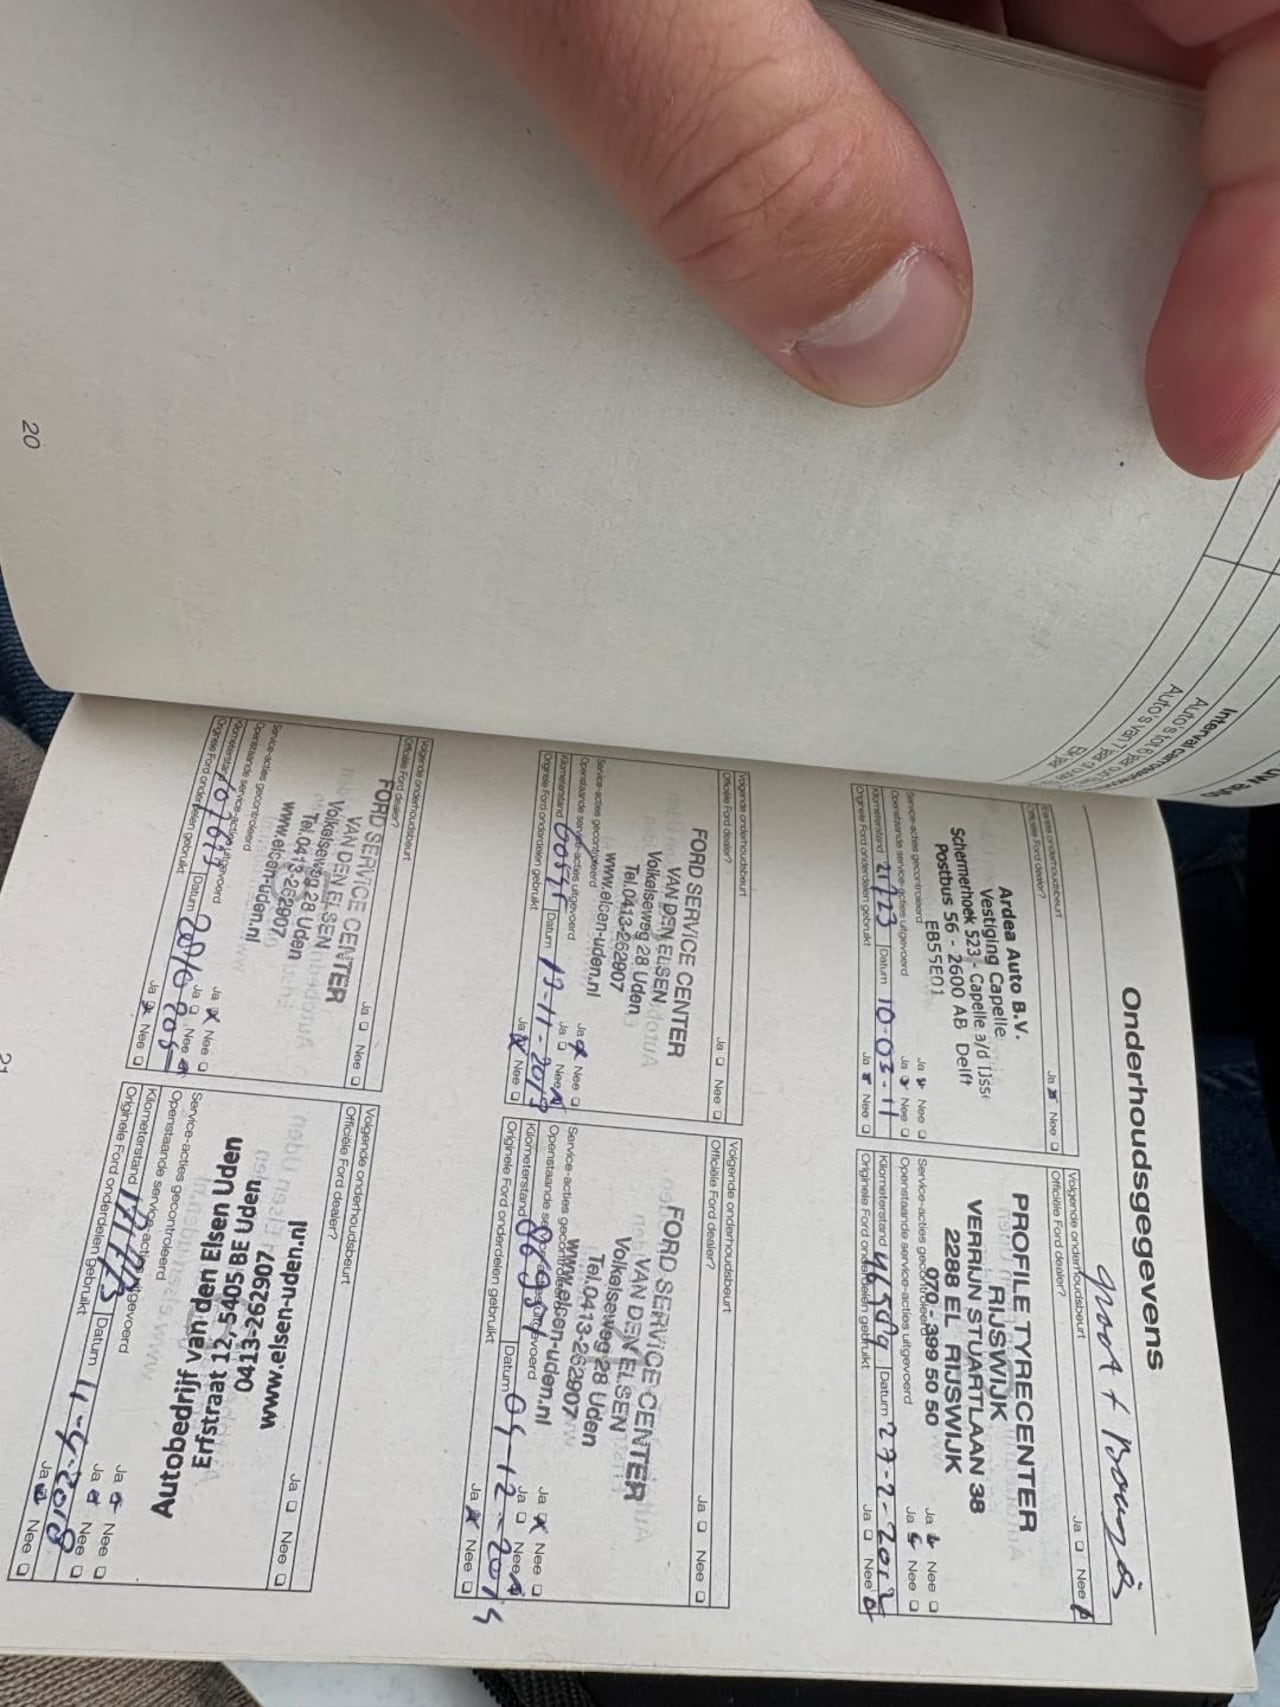 20
Uw auto
Interval carrosserie
Auto's tot 6 jaar
Auto's van 7 jaar of ouder
Elk jaar
Onderhoudsgegevens
Eerste onderhoudsbeurt
Officiële Ford dealer? Ja Nee
Ardea Auto B.V.
Vestiging Capelle
Schermerhoek 523 - Capelle a/d IJssel
Postbus 56 - 2600 AB Delft
EB55E01
Service-acties gecontroleerd Ja Nee
Openstaande service-acties uitgevoerd Ja Nee
Kilometerstand 21723 Datum 10-03-11
Originele Ford onderdelen gebruikt Ja Nee
groot +
Volgende onderhoudsbeurt
Officiële Ford dealer? Ja Nee
PROFILE TYRECENTER
RIJSWIJK
VERRIJN STUARTLAAN 38
2288 EL RIJSWIJK
070 - 399 50 50
Service-acties gecontroleerd Ja Nee
Openstaande service-acties uitgevoerd Ja Nee
Kilometerstand 46589 Datum 27-2-2012
Originele Ford onderdelen gebruikt Ja Nee
Volgende onderhoudsbeurt
Officiële Ford dealer? Ja Nee
FORD SERVICE CENTER
VAN DEN ELSEN
Volkelseweg 28 Uden
Tel.0413-262907
www.elsen-uden.nl
Service-acties gecontroleerd Ja Nee
Openstaande service-acties uitgevoerd Ja Nee
Kilometerstand Datum
Originele Ford onderdelen gebruikt Ja Nee
Volgende onderhoudsbeurt
Officiële Ford dealer? Ja Nee
FORD SERVICE CENTER
VAN DEN ELSEN
Volkelseweg 28 Uden
Tel.0413-262907
www.elsen-uden.nl
Service-acties gecontroleerd Ja Nee
Openstaande service-acties uitgevoerd Ja Nee
Kilometerstand Datum
Originele Ford onderdelen gebruikt Ja Nee
Volgende onderhoudsbeurt
Officiële Ford dealer? Ja Nee
FORD SERVICE CENTER
VAN DEN ELSEN
Volkelseweg 28 Uden
Tel.0413-262907
www.elsen-uden.nl
Service-acties gecontroleerd Ja Nee
Openstaande service-acties uitgevoerd Ja Nee
Kilometerstand Datum
Originele Ford onderdelen gebruikt Ja Nee
Volgende onderhoudsbeurt
Officiële Ford dealer? Ja Nee
www.elsen-uden.nl
0413-262907
Erfstraat 12, 5405 BE Uden
Autobedrijf van den Elsen Uden
Service-acties gecontroleerd Ja Nee
Openstaande service-acties uitgevoerd Ja Nee
Kilometerstand Datum 11-4-2018
Originele Ford onderdelen gebruikt Ja Nee
21